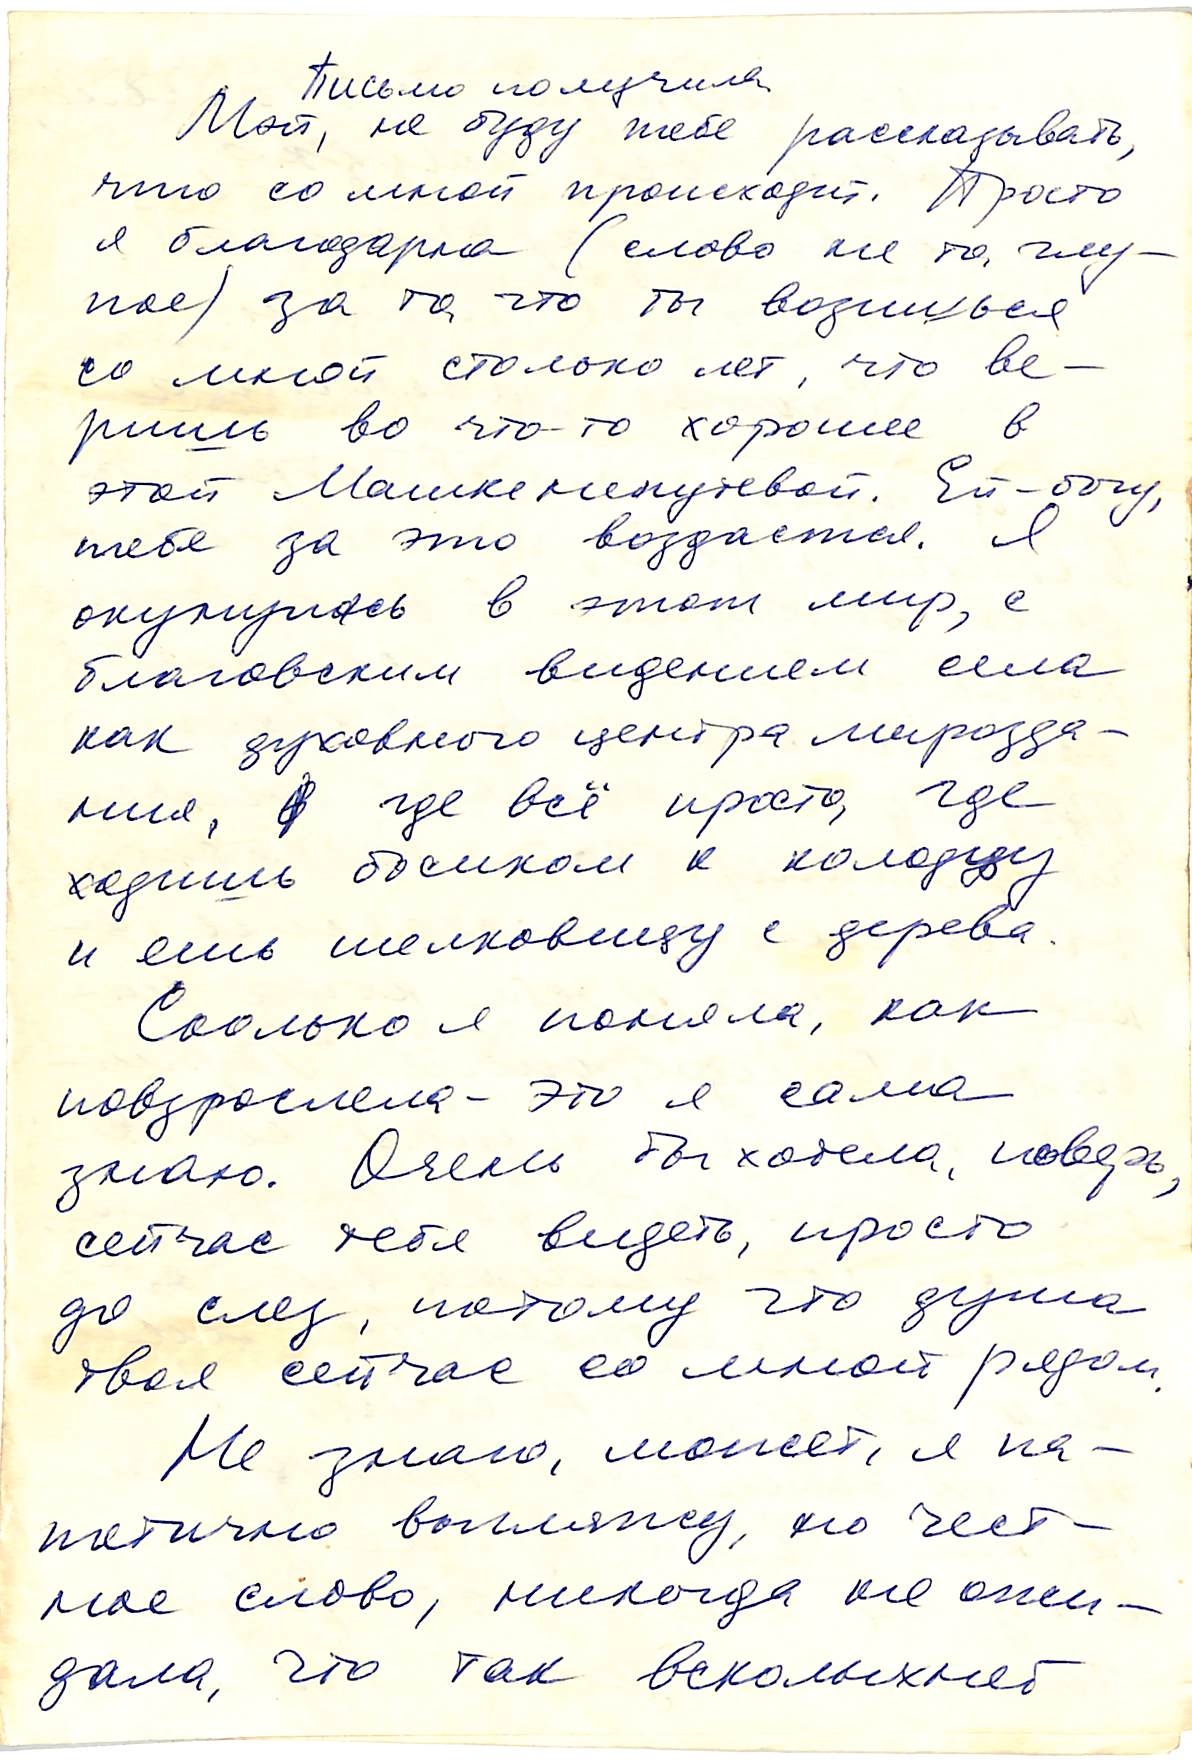 Письмо получила
Мэй, не буду тебе рассказывать,
что со мной происходит. Просто
я благодарна (слово не то, глу-
пое) за то, что ты возишься
со мной столько лет, что ве-
ришь во что-то хорошее в
этой Машке непутевой. Ей-богу,
тебе за это воздастся. Я
окунулась в этот мир, с
благовским видением села
как духовного центра мирозда-
ния, где всё просто, где
ходишь босиком к колодцу
и ешь шелковицу с дерева.
Сколько я поняла, как
повзрослела - это я сама
знаю. Очень бы хотела, поверь,
сейчас тебя видеть, просто
до слез, потому что душа
твоя сейчас со мной рядом.
Не знаю, может, я па-
тетично выгляжу, но чест-
ное слово, никогда не ожи-
дала, что так всколыхнет